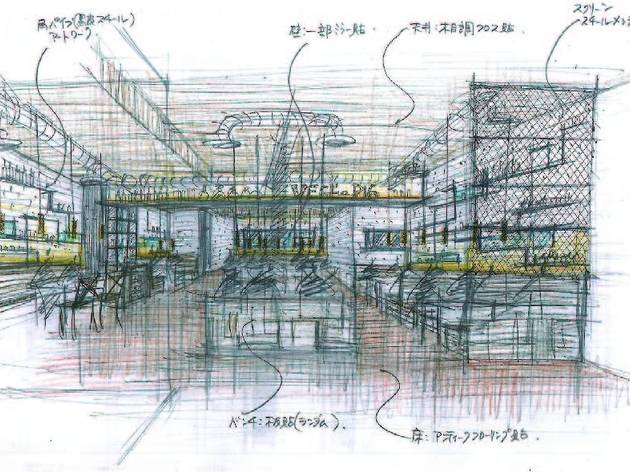 角パイプ(黒皮スチール)
アートワーク
壁:一部ミラー貼
天井:木目調クロス貼
スクリーン
スチールメッシュ
ベンチ:板貼(ランダム).
床:アンティークフローリング貼.